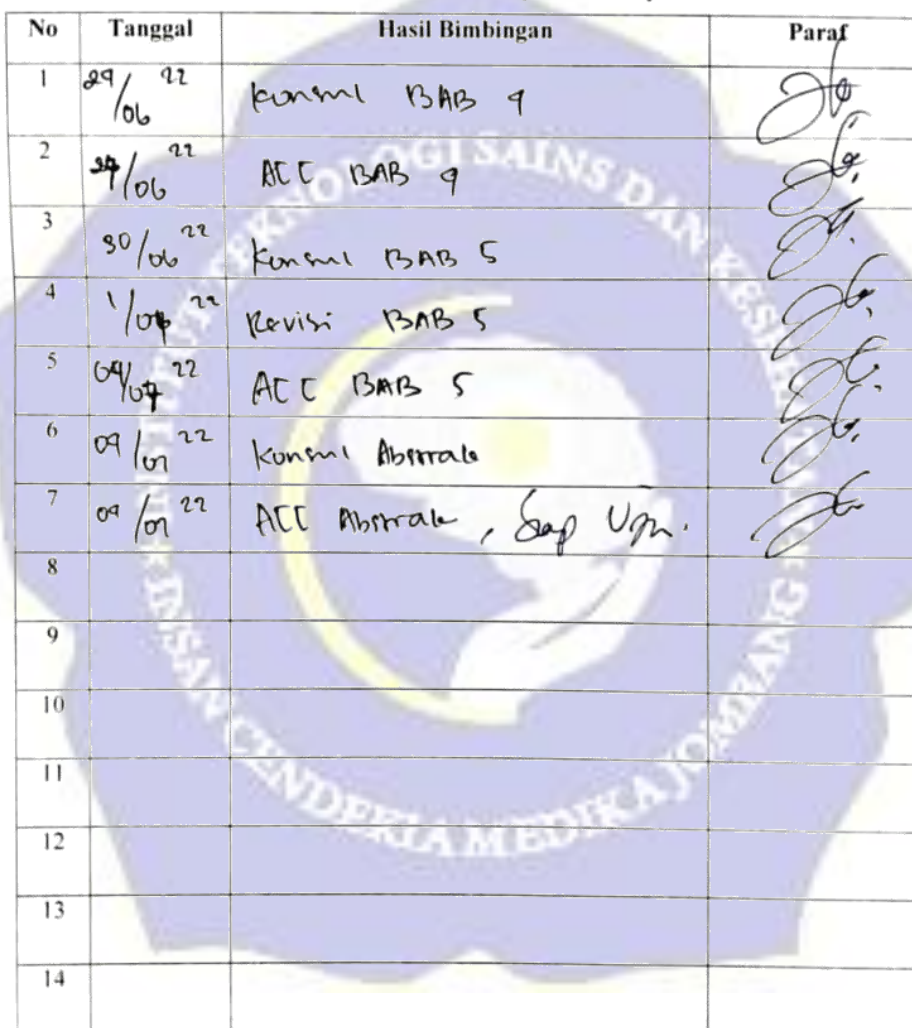 No Tanggal Hasil Bimbingan Paraf
1 29/06 22 Konsul BAB 4
2 /06 22 ACC BAB 4
3 30/06 22 Konsul BAB 5
4 1/07 22 Revisi BAB 5
5 04/07 22 ACC BAB 5
6 04/07 22 Konsul Abstrak
7 04/07 22 ACC Abstrak, Siap
8
9
10
11
12
13
14
INSTITUT TEKNOLOGI SAINS DAN KESEHATAN
INSAN CENDEKIA MEDIKA JOMBANG